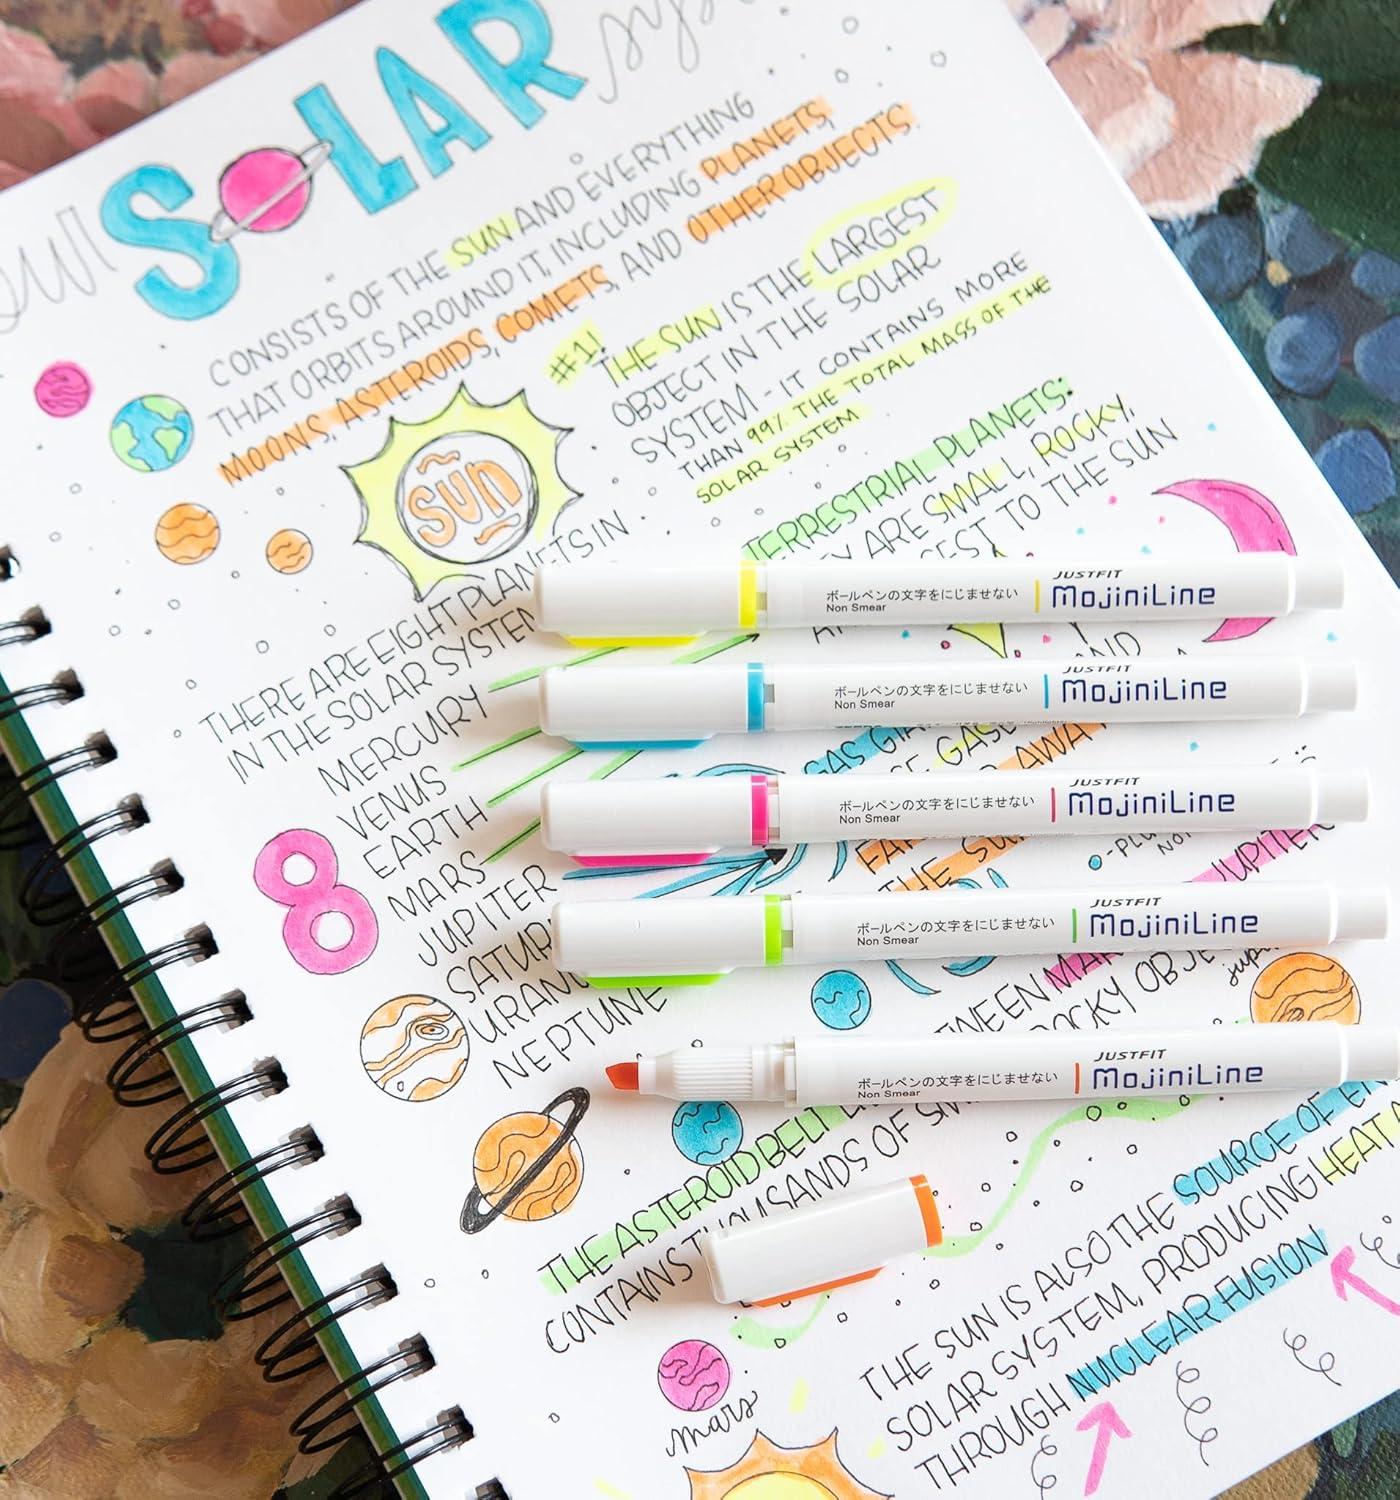 SOLAR
CONSISTS OF THE SUN AND EVERYTHING
THAT ORBITS AROUND IT, INCLUDING PLANETS,
MOONS, ASTEROIDS, COMETS, AND OTHER OBJECTS.
#1!
THE SUN IS THE LARGEST
OBJECT IN THE SOLAR
SYSTEM - IT CONTAINS MORE
THAN 99% THE TOTAL MASS OF THE
SOLAR SYSTEM
SUN
TERRESTRIAL PLANETS:
ARE SMALL, ROCKY,
TO THE SUN
THERE ARE EIGHT PLANETS IN
IN THE SOLAR SYSTEM
MERCURY
VENUS
EARTH
MARS
JUPITER
NEPTUNE
8
ボールペンの文字をにじませない
Non Smear
JUSTFIT
MojiniLine
AND
ボールペンの文字をにじませない
Non Smear
JUSTFIT
MojiniLine
GAS
AWAY
ボールペンの文字をにじませない
Non Smear
JUSTFIT
MojiniLine
THE
JUPITER
ボールペンの文字をにじませない
Non Smear
JUSTFIT
MojiniLine
ROCKY
ボールペンの文字をにじませない
Non Smear
JUSTFIT
MojiniLine
THE ASTEROID BELT
CONTAINS THOUSANDS OF
mars
THE SUN IS ALSO THE SOURCE OF
SOLAR SYSTEM, PRODUCING HEAT
THROUGH NUCLEAR FUSION